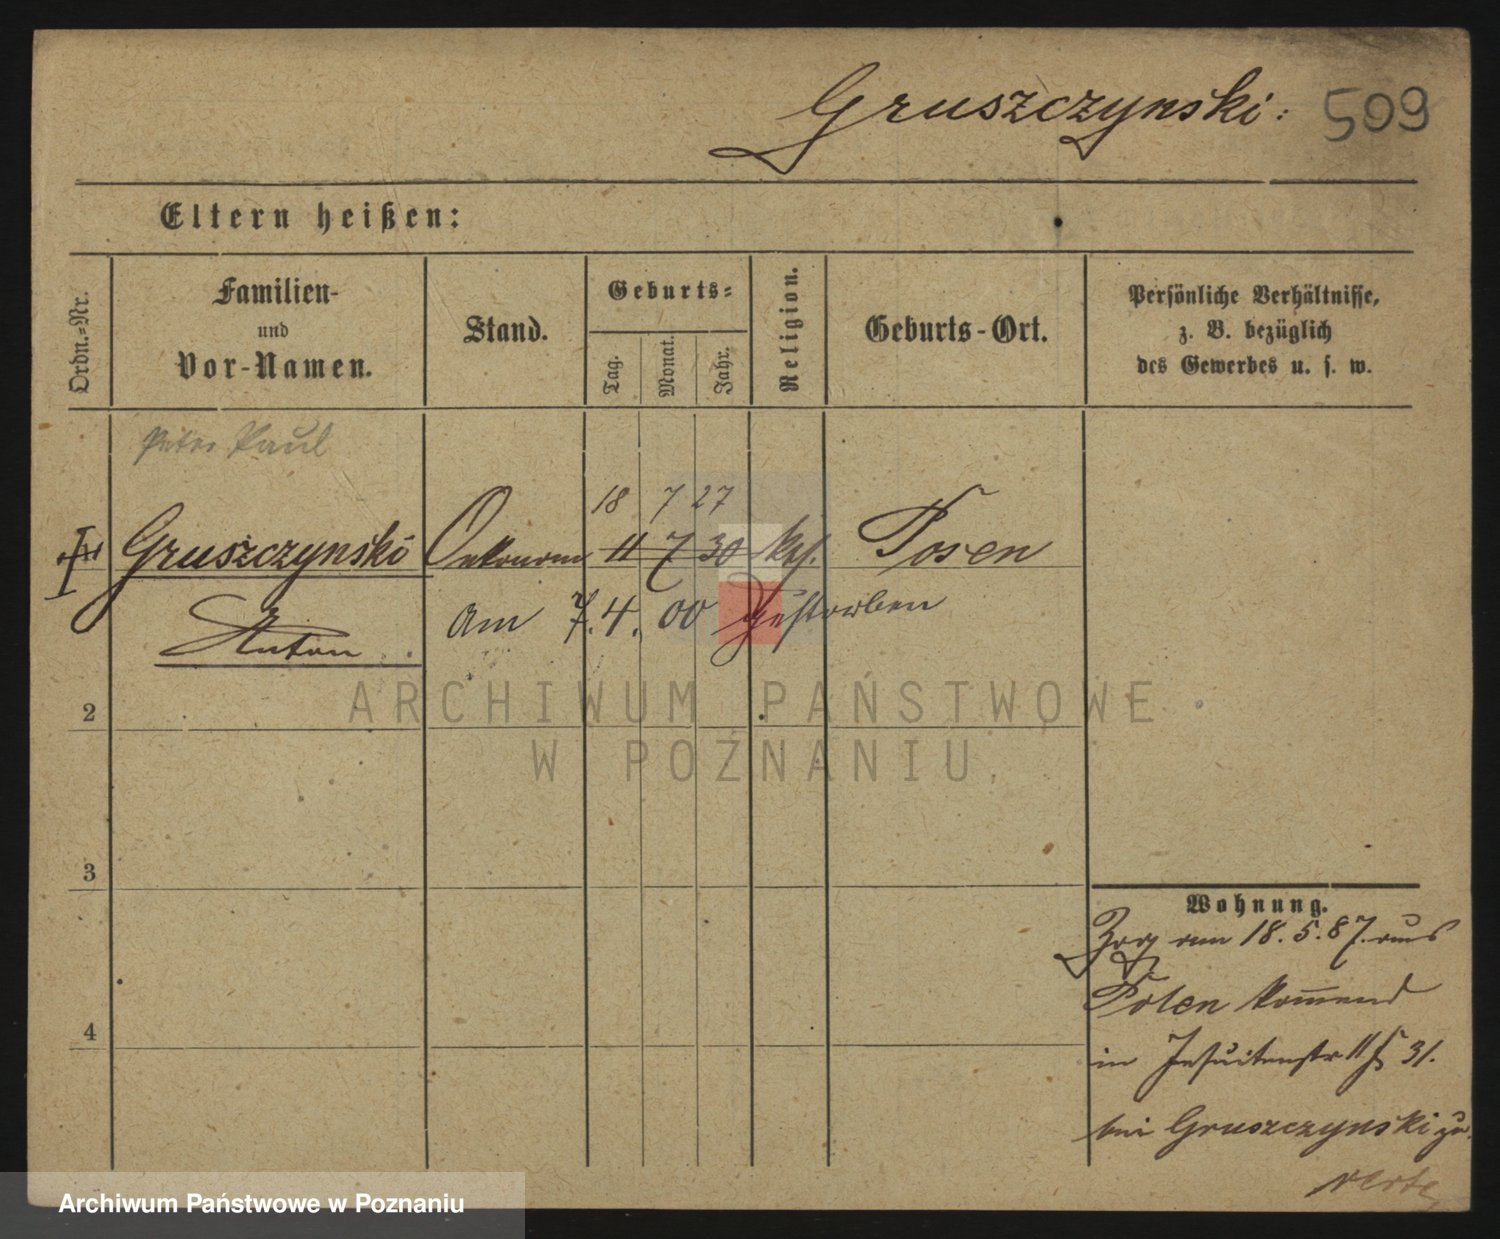 Gruszczynski: 509
Eltern heißen:
Ordn.=Nr.
Familien-
und
Vor-Namen.
Stand.
Geburts=
Tag.
Monat.
Jahr.
Religion.
Geburts-Ort.
Persönliche Verhältnisse,
z. B. bezüglich
des Gewerbes u. s. w.
Peter Paul
18 7 27
Gruszczynski Oekonom 11 7 30 kth. Posen
Anton
am 7. 4. 00 Gestorben
2
3
4
Wohnung.
Zog am 18. 5. 87. aus
Polen kom̅end
in Jesuitenstr 11 31.
bei Gruszczynski zu.
verte
ARCHIWUM PAŃSTWOWE
W POZNANIU
Archiwum Państwowe w Poznaniu